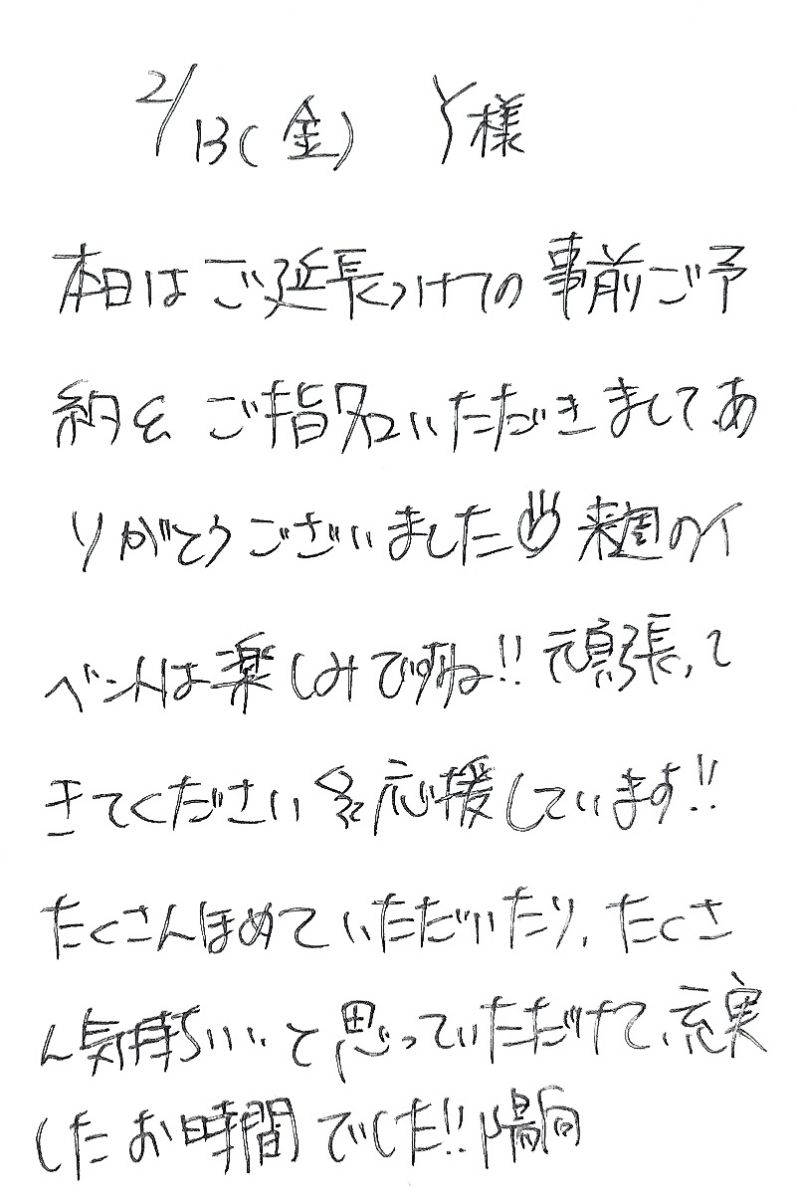 2/13(金) Y様
本日はご延長つけての事前ご予
約をご指名いただきまして、あ
りがとうございました 来週のイ
ベントは楽しみですね!! 頑張って
きてください 応援しています!!
たくさんほめていただいたり、たくさ
ん気持ちいいと思っていただけて、充実
したお時間でした!! 陽向